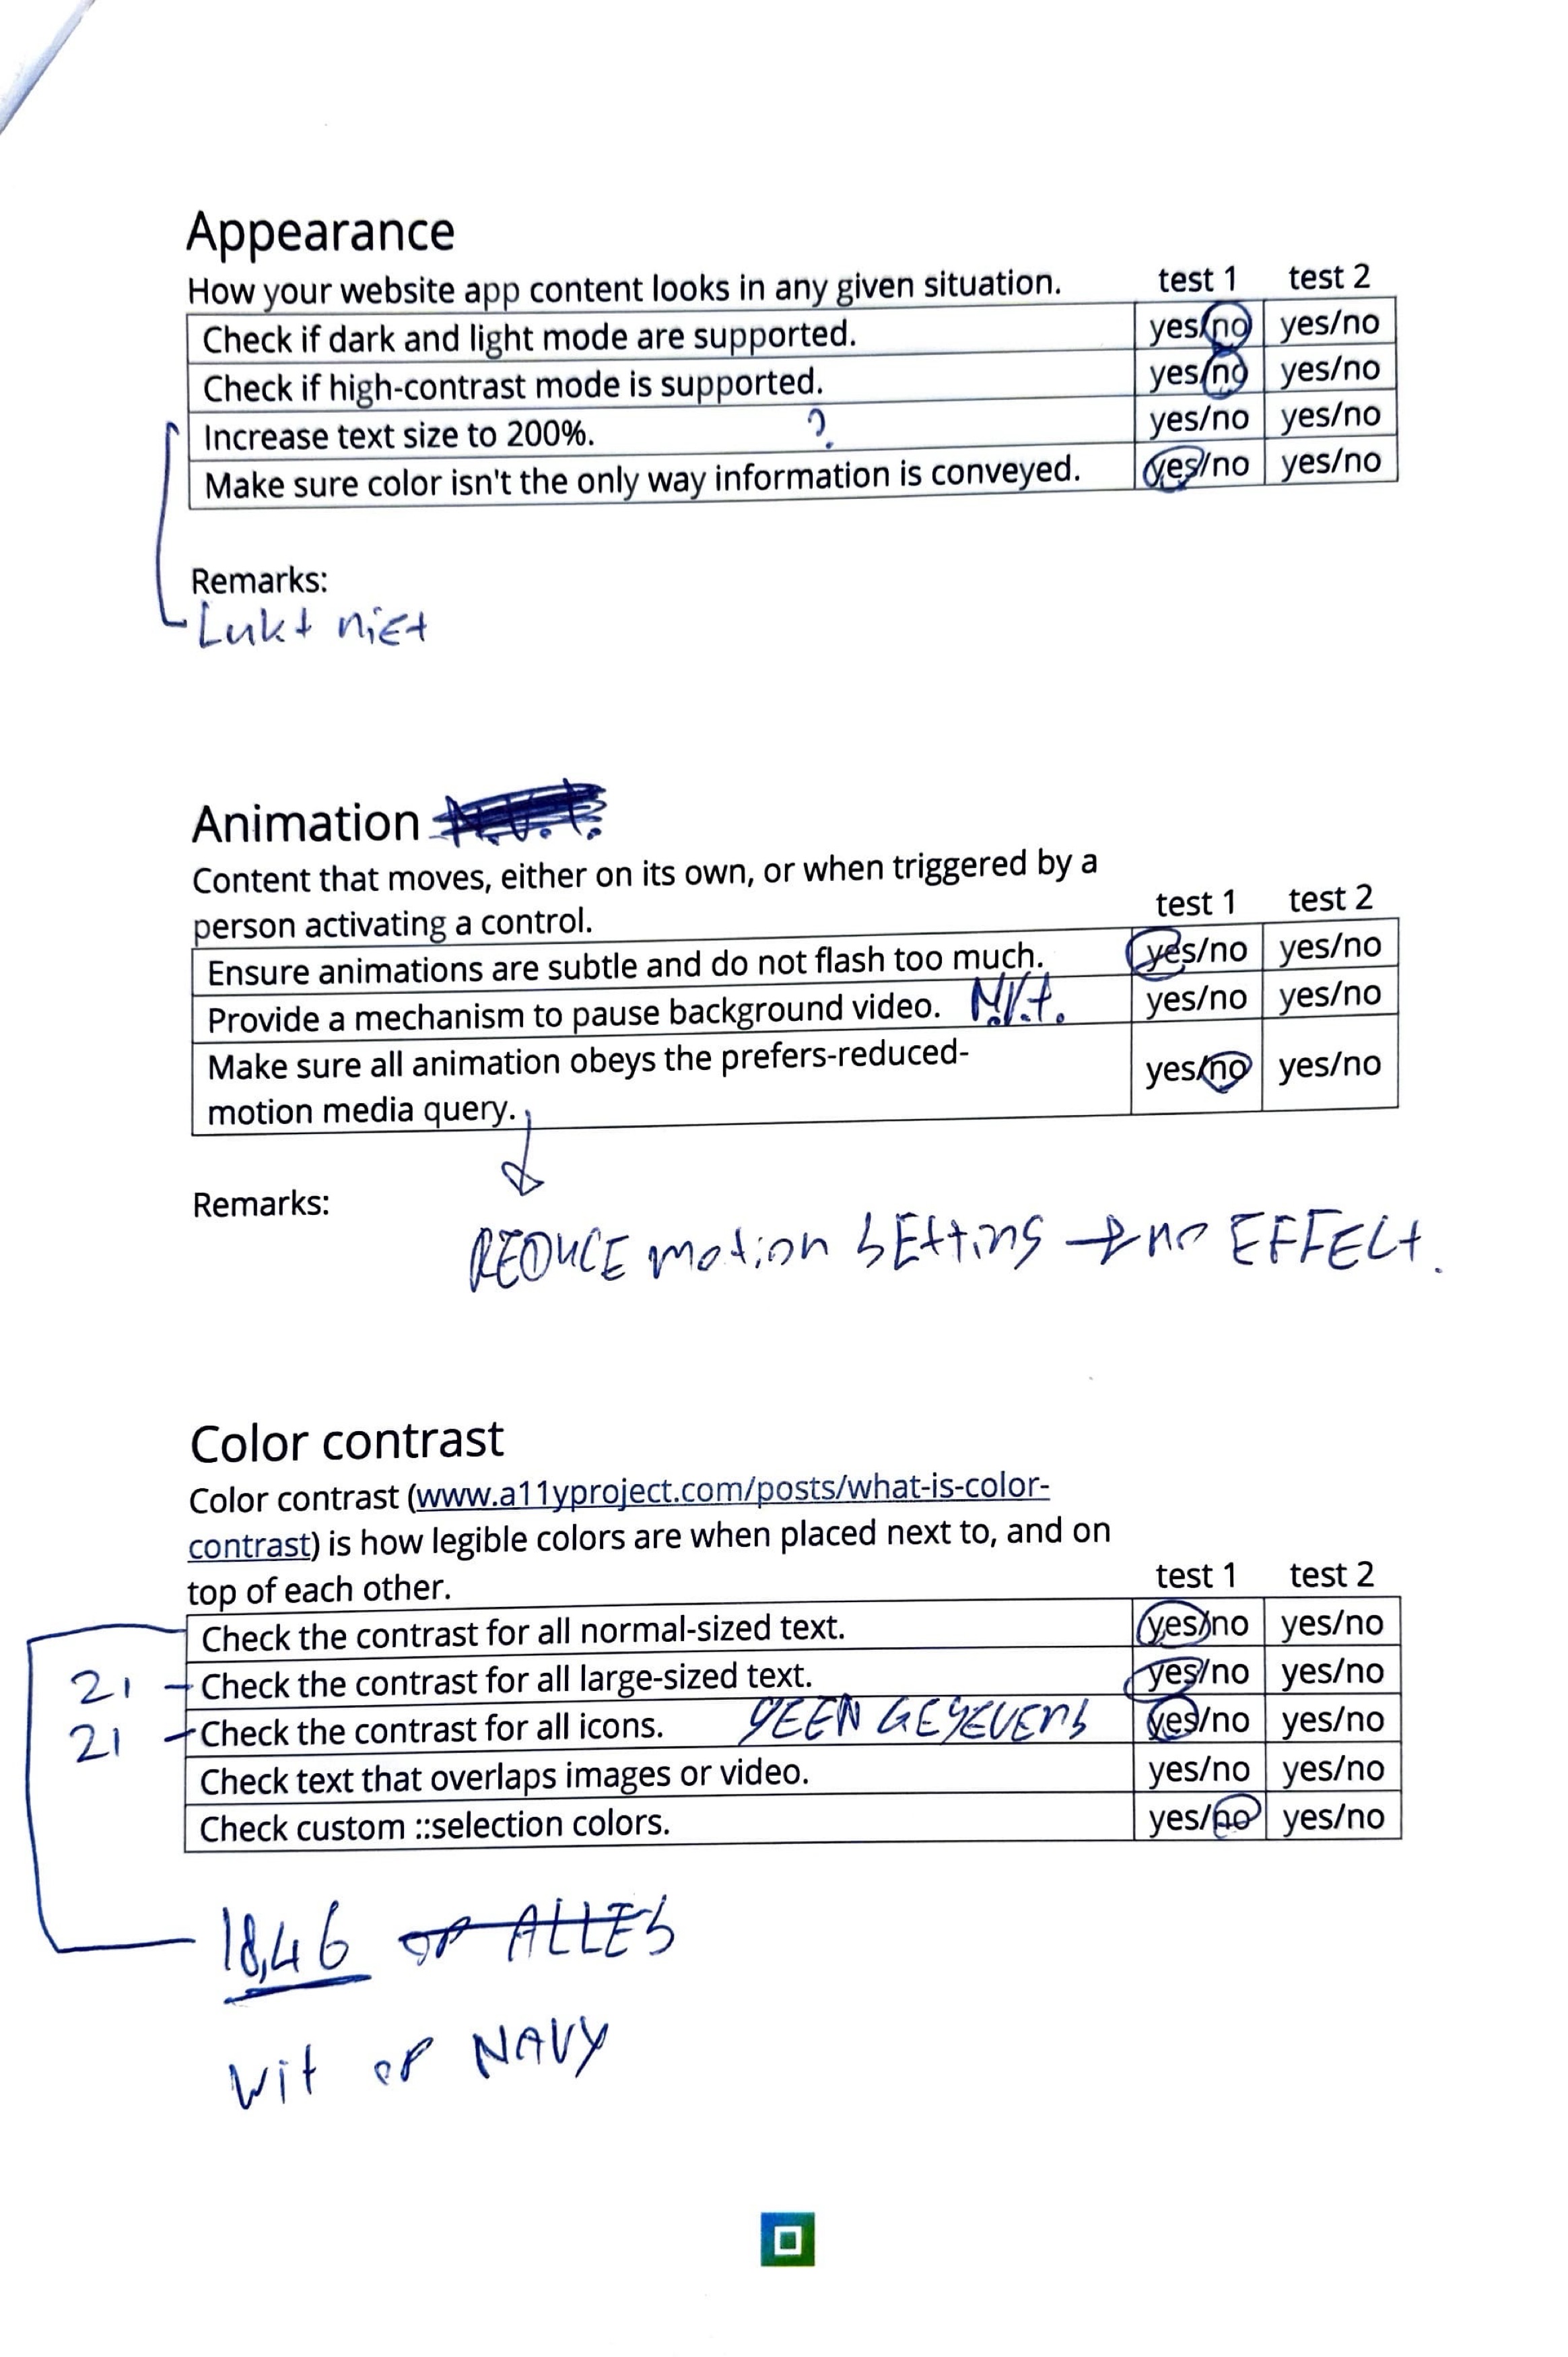 Appearance
How your website app content looks in any given situation. test 1 test 2
Check if dark and light mode are supported. yes/no yes/no
Check if high-contrast mode is supported. yes/no yes/no
Increase text size to 200%. ? yes/no yes/no
Make sure color isn't the only way information is conveyed. yes/no yes/no
Remarks:
Lukt niet
Animation N.v.t.
Content that moves, either on its own, or when triggered by a
person activating a control. test 1 test 2
Ensure animations are subtle and do not flash too much. yes/no yes/no
Provide a mechanism to pause background video. N.V.t. yes/no yes/no
Make sure all animation obeys the prefers-reduced- yes/no yes/no
motion media query.
Remarks:
REDUCE motion SEttinG → no EFFECt.
Color contrast
Color contrast (www.a11yproject.com/posts/what-is-color-
contrast) is how legible colors are when placed next to, and on
top of each other. test 1 test 2
Check the contrast for all normal-sized text. yes/no yes/no
21 Check the contrast for all large-sized text. yes/no yes/no
21 Check the contrast for all icons. GEEN GEGEVENS yes/no yes/no
Check text that overlaps images or video. yes/no yes/no
Check custom ::selection colors. yes/no yes/no
18,46 OP ALLES
wit op NAVY